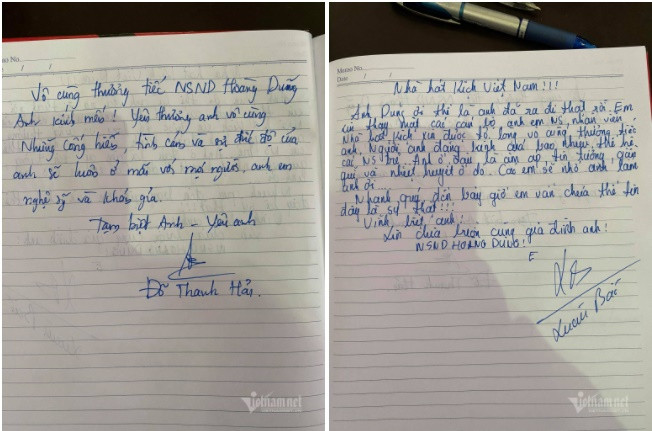 Vô cùng thương tiếc NSND Hoàng Dũng
Anh kính mến! Yêu thương anh vô cùng
Những cống hiến, tình cảm và sự của
anh sẽ luôn ở mãi với mọi người, anh em
nghệ sỹ và khán giả.
Tạm biệt Anh - Yêu anh
Đỗ Thanh Hải.
Vietnamnet
Memo No.
Date / /
Nhà hát Kịch Việt Nam!!!
Anh Dũng ơi thế là anh đã ra đi thật rồi. Em
xin thay mặt các cán bộ anh em NS, nhân viên
Nhà hát Kịch xin được tỏ lòng vô cùng thương tiếc
anh. Người anh đáng kính của bao nhiêu thế hệ
các NS trẻ. Anh ở đâu là ấm áp tin tưởng, gần
gũi và nhiệt huyết ở đó. Các em sẽ nhớ anh lắm
anh ơi.
Nhanh quá, đến bây giờ em vẫn chưa thể tin
đây là sự thật!!!
Vĩnh biệt anh!
Xin chia buồn cùng gia đình anh!
NSND HOÀNG DŨNG!
E
Xuân Bắc
Vietnamnet